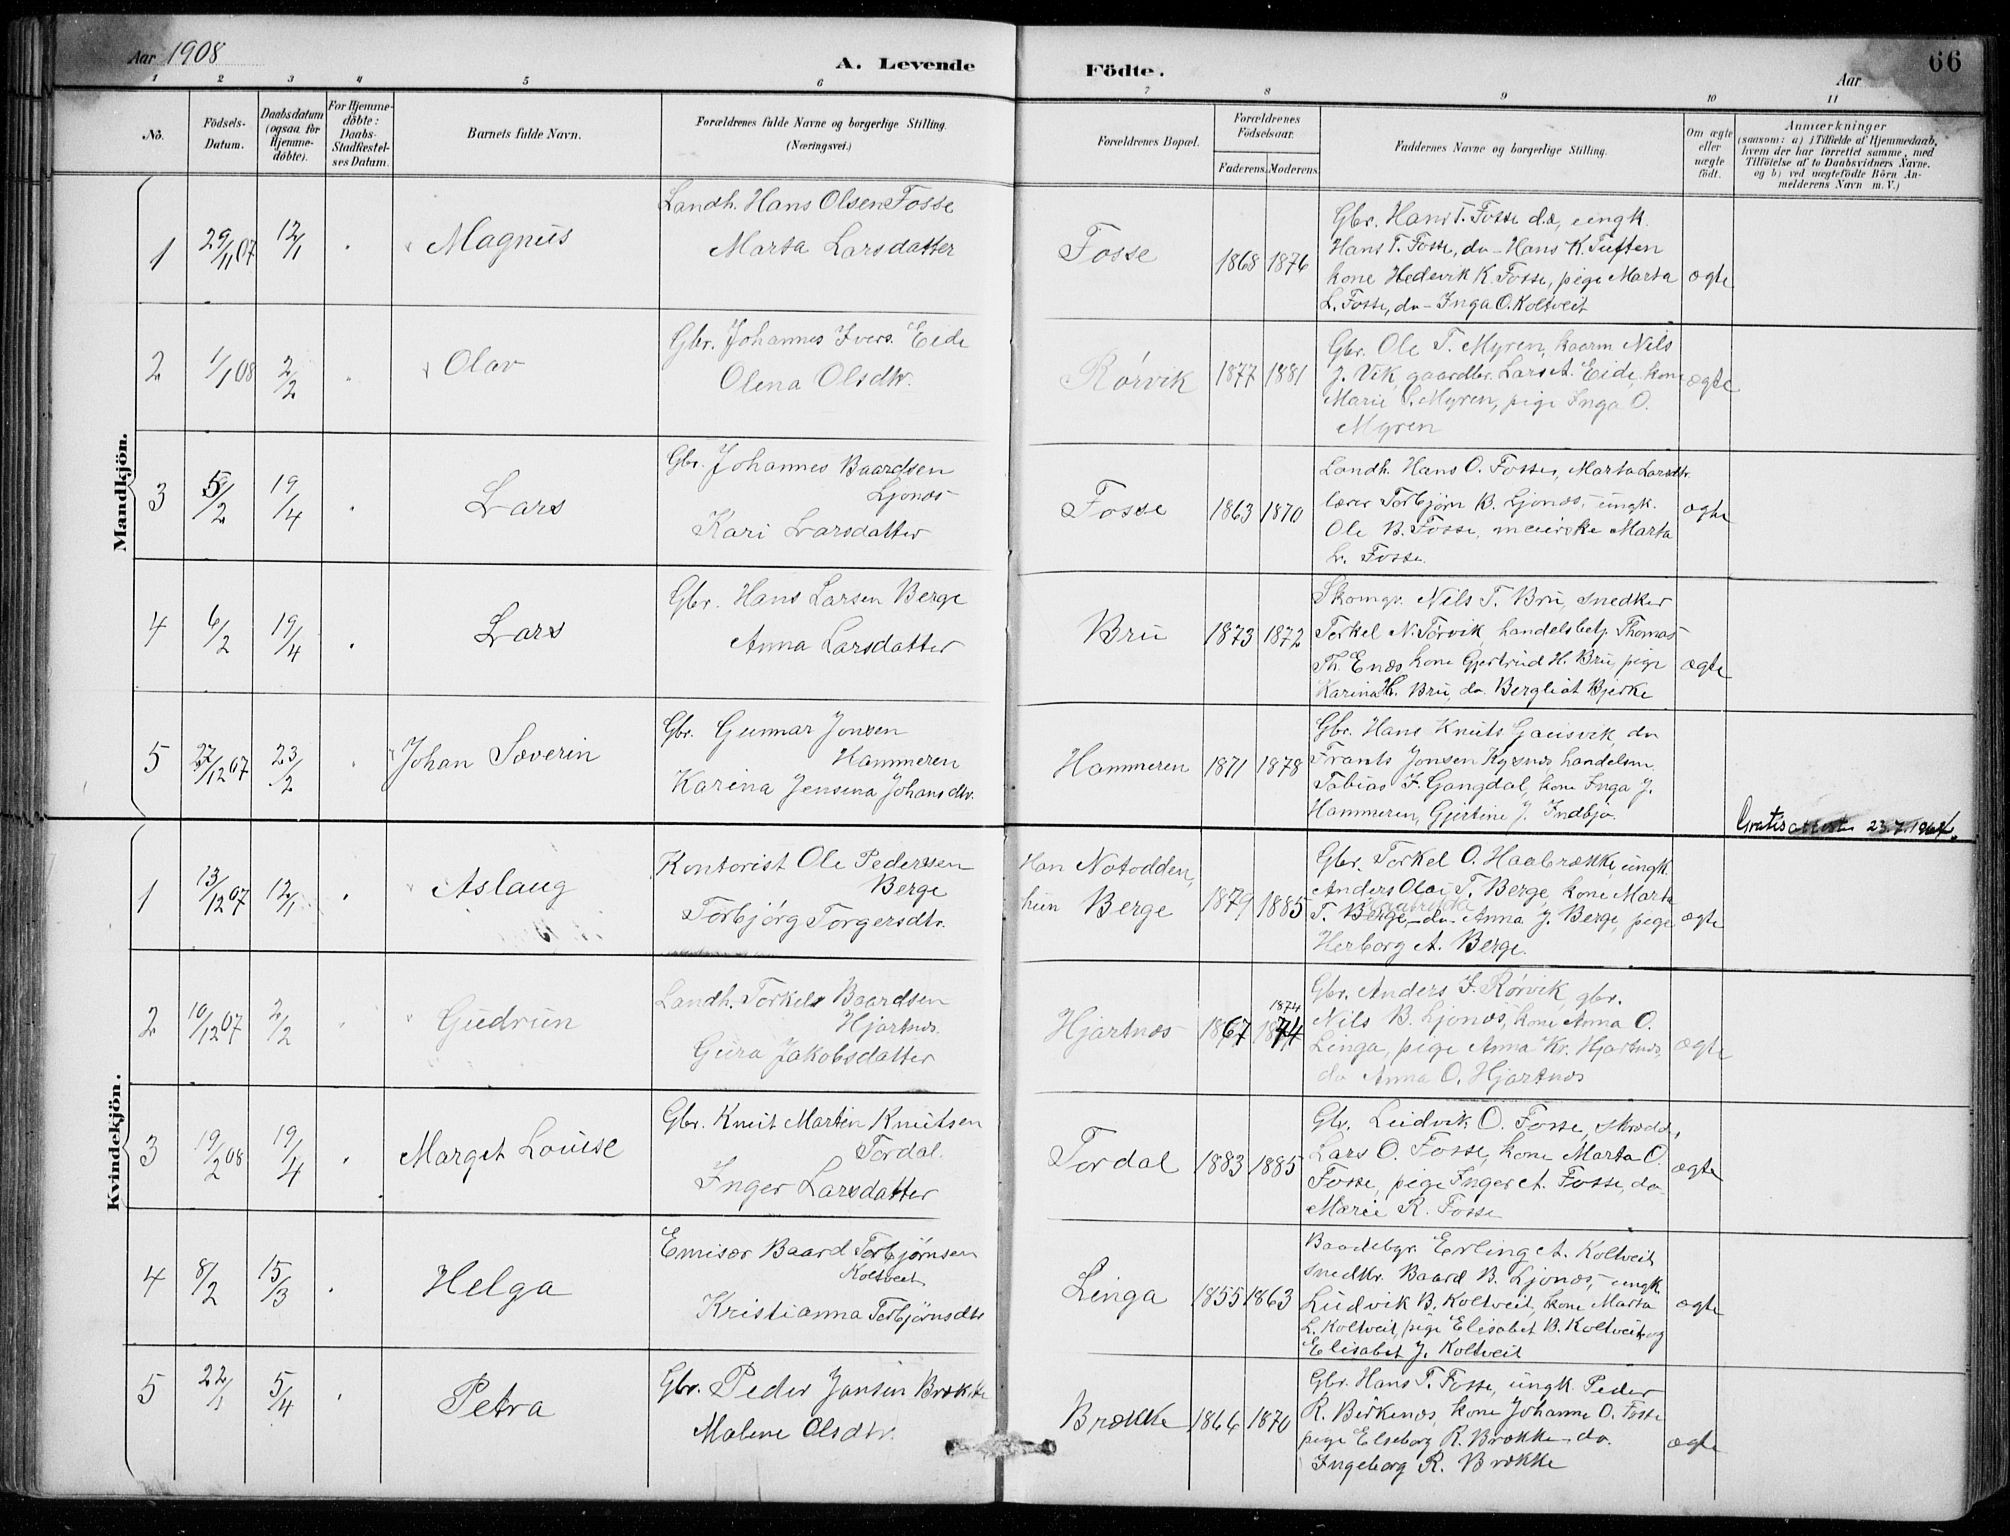 Aar 1908
A. Levende
Födte.
Aar
66
1 2 3 4 5 6 7 8 9 10 11
No.
Födsels-Datum.
Daabsdatum (ogsaa for Hjemme-döbte).
For Hjemme-döbte: Daabs-Stadfæstel-ses Datum.
Barnets fulde Navn.
Forældrenes fulde Navne og borgerlige Stilling.
(Næringsvei.)
Forældrenes Bopæl.
Forældrenes Födselsaar.
Faderens. Moderens.
Faddernes Navne og borgerlige Stilling.
Om ægte eller uægte födt.
Anmærkninger
(saasom: a) i Tilfælde af Hjemmedaab,
hvem der har forrettet samme, med
Tilföielse af to Daabsvidners Navne.
og b) ved uægtefödte Börn An-
melderens Navn m. V.)
Mandkjön.
1 29/11 07 12/1 Magnus
Landh. Hans Olsen Fosse
Marta Larsdatter
Fosse 1868 1876
Gbr. Hans T. Fosse d.æ, ungk.
Hans T. Fosse, do - Hans K. Tuften
kone Hedevik K. Fosse, pige Marta
L. Fosse, do - Inga O. Koltveit
ægte
2 1/1 08 2/2 Olav
Gbr. Johannes Ivers. Eide
Olena Olsdtr.
Rørvik 1877 1881
Gbr. Ole T. Myren, kaarm Nils
J. Vik, gaardbr. Lars A. Eide, kone
Marie S. Myren, pige Inga O.
Myren
ægte
3 5/2 19/4 Lars
Gbr. Johannes Baardsen
Ljonæs
Kari Larsdatter
Fosse 1863 1870
Landh. Hans O. Fosse, Marta Larsdtr.
lærer Torbjørn B. Ljonæs, ungk.
Ole B. Fosse, meierske Marta
L. Fosse.
ægte
4 6/2 19/4 Lars
Gbr. Hans Larsen Berge
Anna Larsdatter
Bru 1873 1872
Skomgr. Nils T. Bru, snedker
Terkel N. Tørvik handelsbetj. Thomas
Th. Enæs kone Gjertrud H. Bru, pige
Karina H. Bru, do. Bergliot Bjerke
ægte
5 27/12 07 23/2 Johan Severin
Gbr. Gunnar Jonsen
Hammeren
Karina Jensena Johansdtr.
Hammeren 1871 1878
Gbr. Hans Knuts Gausvik, do
Frants Jonsen Kysnæs handelsm.
Tobias F. Gangdal, kone Inga J.
Hammeren, Gjertine J. Indbjo.
Gratisattest 23.7.
Kvindekjön.
1 13/12 07 12/1 Aslaug
Kontorist Ole Pedersen
Berge
Torbjörg Torgersdtr.
Han Notodden,
hun Berge 1879 1885
Gbr. Torkel O. Haabrække ungk.
Anders Olai T. Berge, kone Marta
T. Berge, do - Anna J. Berge, pige
Herborg A. Berge.
ægte
2 10/12 07 2/2 Gudrun
Landh. Torkels Baardsen
Hjartnæs.
Guro Jakobsdatter
Hjartnæs 1867 1874
Gbr. Anders J. Rørvik, gbr.
Nils B. Ljonæs, kone Anna O.
Linga, pige Anna Kr. Hjartnæs,
do Anna O. Hjartnæs
ægte
3 19/2 08 19/4 Margit Louise
Gbr. Knut Martin Knutsen
Tordal.
Inger Larsdatter
Tordal 1883 1885
Gbr. Ludvik O. Fosse, skrædd.,
Lars O. Fosse, kone Marta O.
Fosse, pige Inger A. Fosse, do
Marie R. Fosse
ægte
4 8/2 15/3 Helga
Emisær Baard Torbjørnsen
Koltveit
Kristianna Torbjørnsdtr
Linga 1855 1863
Baadebgr. Erling A. Koltveit
snedkr. Baard B. Ljonæs, ungk
Ludvik B. Koltveit, kone Marta
L. Koltveit, pige Elisabet B. Koltveit og
Elisabet J. Koltveit
ægte
5 22/1 5/4 Petra
Gbr. Peder Jansen Brække
Malene Olsdtr.
Brække 1866 1870
Gbr. Hans T. Fosse, ungk. Peder
R. Birkenæs, kone Johanne O. Fosse
pige Elseborg R. Brække, do.
Ingeborg R. Brække
ægte